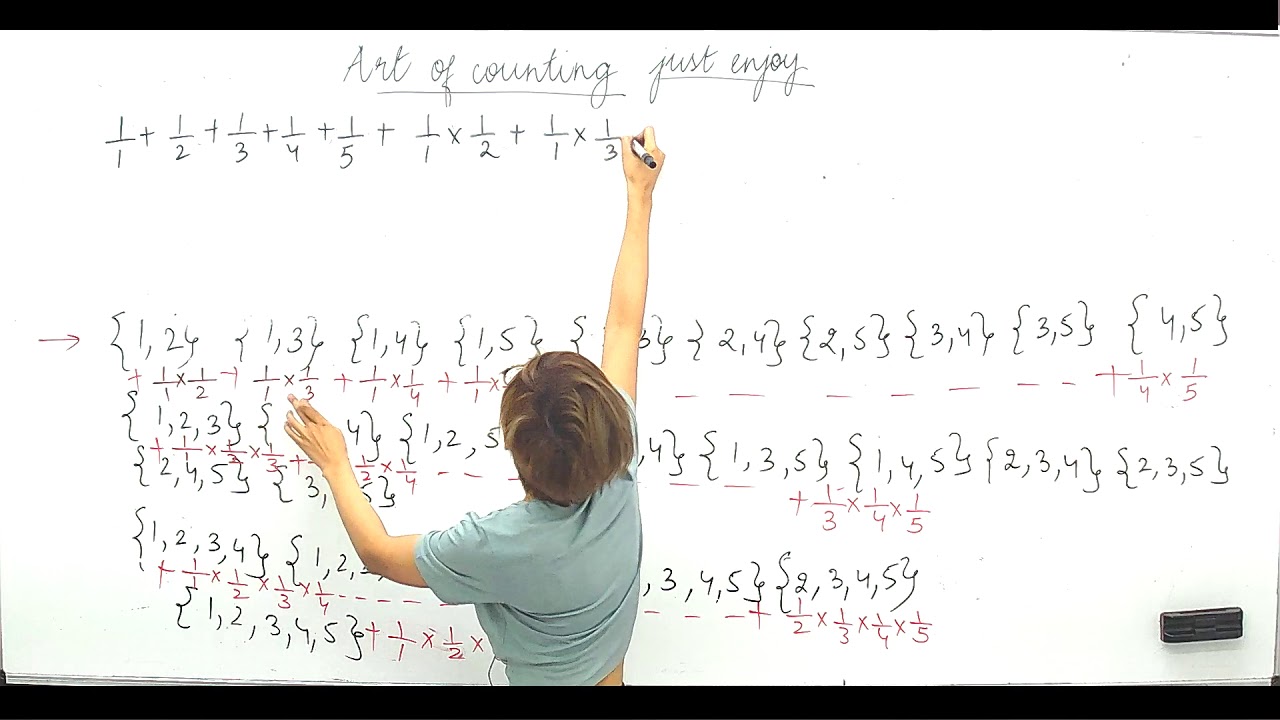 Art of counting just enjoy
1/1 + 1/2 + 1/3 + 1/4 + 1/5 + 1/1 × 1/2 + 1/1 × 1/3
→ {1,2} {1,3} {1,4} {1,5} { 3} {2,4} {2,5} {3,4} {3,5} {4,5}
+ 1/1 × 1/2 + 1/1 × 1/3 + 1/1 × 1/4 + 1/1 × — — — — — — + 1/4 × 1/5
{1,2,3} { 4} {1,2,5 4} {1,3,5} {1,4,5} {2,3,4} {2,3,5}
+ 1/1 × 1/2 × 1/3 + 1/2 × 1/4 - - - — — + 1/3 × 1/4 × 1/5
{2,4,5} {3, 5}
{1,2,3,4} {1,2, ,3,4,5} {2,3,4,5}
+ 1/1 × 1/2 × 1/3 × 1/4 - - - - - - — — — + 1/2 × 1/3 × 1/4 × 1/5
{1,2,3,4,5} + 1/1 × 1/2 ×